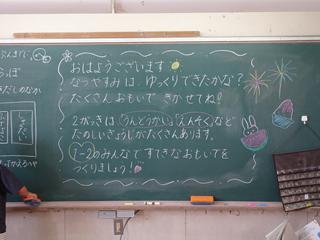 おはようございます
なつやすみは、ゆっくりできたかな?
たくさん おもいで きかせてね!
2がっきは「うんどうかい」「えんそく」など
たのしいぎょうじがたくさんあります。
1-2のみんなで すてきなおもいでを
つくりましょう!